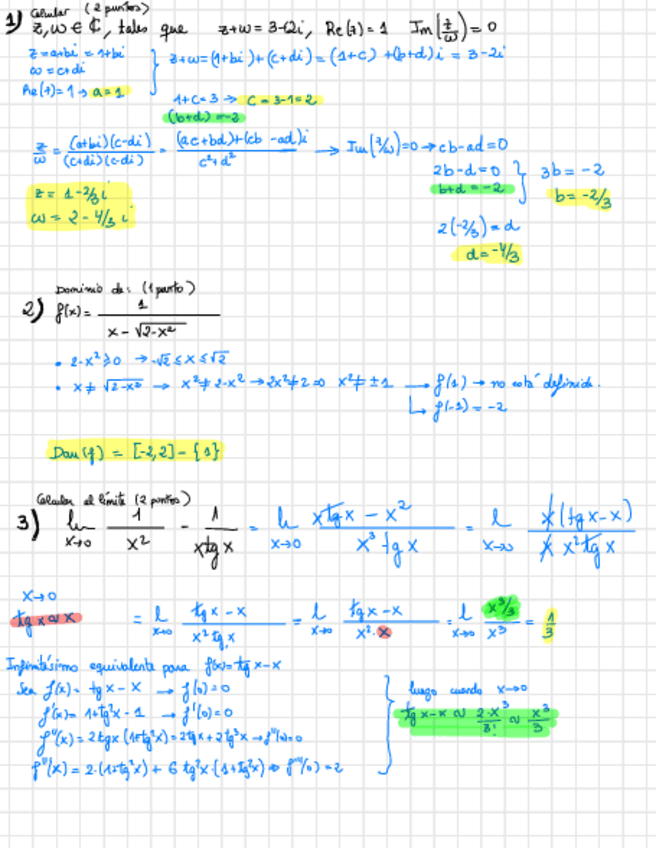 1) Calcular (2 puntos)
z, w ∈ ℂ, tales que z+w = 3-2i, Re(z) = 1 Im(z/w) = 0
z = a+bi = 1+bi
w = c+di
Re(z)=1 → a=1
z+w = (1+bi)+(c+di) = (1+c)+(b+d)i = 3-2i
1+c=3 → c=3-1=2
(b+d) = -2
z/w = (a+bi)(c-di)/(c+di)(c-di) = (ac+bd)+(cb-ad)i/c²+d² → Im(z/w)=0 → cb-ad=0
2b-d=0
b+d=-2
3b = -2
b = -2/3
z = 1-2/3 i
w = 2-4/3 i
2(-2/3) = d
d = -4/3
Dominio de: (1 punto)
2) f(x) = 1/x-√2-x²
• 2-x² ≥ 0 → -√2 ≤ x ≤ √2
• x ≠ √2-x² → x² ≠ 2-x² → 2x² ≠ 2 x² ≠ ±1 → f(1) → no está definida.
↳ f(-1) = -2
Dom(f) = [-2,2] - {1}
Calcular el límite (2 puntos)
3) lim x→0 1/x² - 1/x tg x = lim x→0 x tg x - x²/x³ tg x = l x→0 x(tg x - x)/x x² tg x
x→0
tg x ∼ x
= l x→0 tg x - x/x² tg x = l x→0 tg x - x/x²·x = l x→0 x³/3/x³ = 1/3
Infinitésimo equivalente para f(x) = tg x - x
Sea f(x) = tg x - x → f(0) = 0
f'(x) = 1+tg²x - 1 → f'(0) = 0
f''(x) = 2tgx (1+tg²x) = 2tgx + 2tg³x → f''(0) = 0
f'''(x) = 2·(1+tg²x) + 6 tg²x·(1+tg²x) → f'''(0) = 2
luego cuando x→0
tg x - x ∼ 2·x³/3! ∼ x³/3